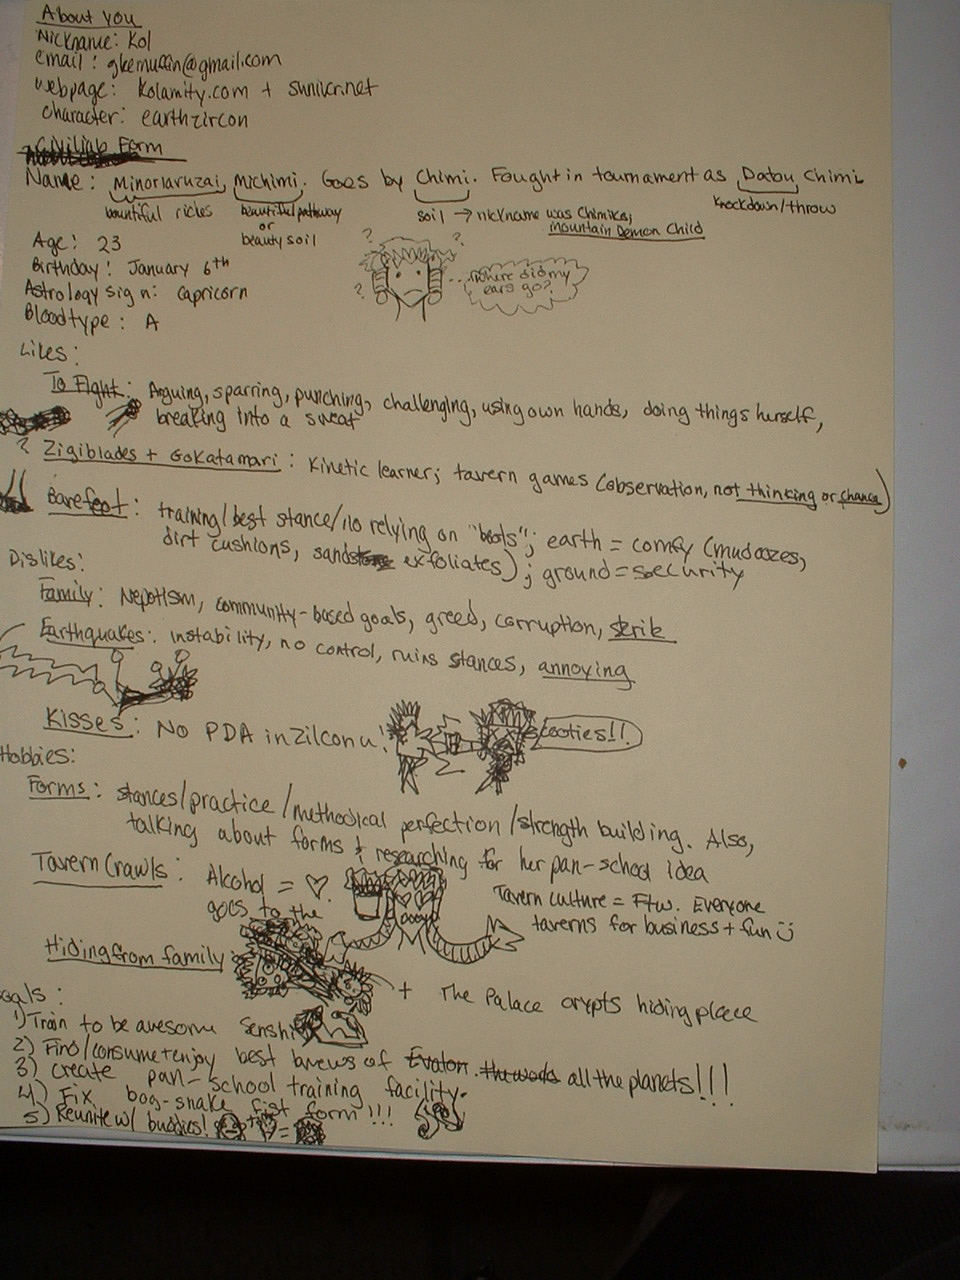 About you
Nickname: Kol
email: gkemuffin@gmail.com
webpage: Kolamity.com + sunikcr.net
character: earthzircon
Civilian Form
Name: Minoriaruzai, Michimi. Goes by Chimi. Fought in tournament as Datou Chimi
bountiful riches beautiful pathway or beauty soil soil → nickname was Chimika, mountain Demon Child knockdown/throw
Age: 23
Birthday: January 6th
Astrology sign: Capricorn
Bloodtype: A
? ? ? ...Where did my ears go?
Likes:
To Fight: Arguing, sparring, punching, challenging, using own hands, doing things herself,
breaking into a sweat
? Zigiblades + Gokatamari: Kinetic learner; tavern games (observation, not thinking or chance)
Barefoot: training/best stance/no relying on "boots"; earth = comfy (mud oozes,
dirt cushions, sand exfoliates); ground = security
Dislikes:
Family: Nepotism, community-based goals, greed, corruption, serik
Earthquakes: instability, no control, ruins stances, annoying
Kisses: No PDA in Zilconu! cooties!!
Hobbies:
Forms: stances/practice/methodical perfection/strength building. Also,
talking about forms & researching for her pan-school idea
Tavern Crawls: Alcohol = ♡. Tavern culture = Ftw. Everyone
goes to the taverns for business + fun
Hiding from family + The Palace crypts hiding place
Goals:
1) Train to be awesome Senshi
2) Find/consume+enjoy best brews of all the planets!!!
3) create pan-school training facility.
4) Fix bog-snake fist form!!!
5) Reunite w/ buddies! + =